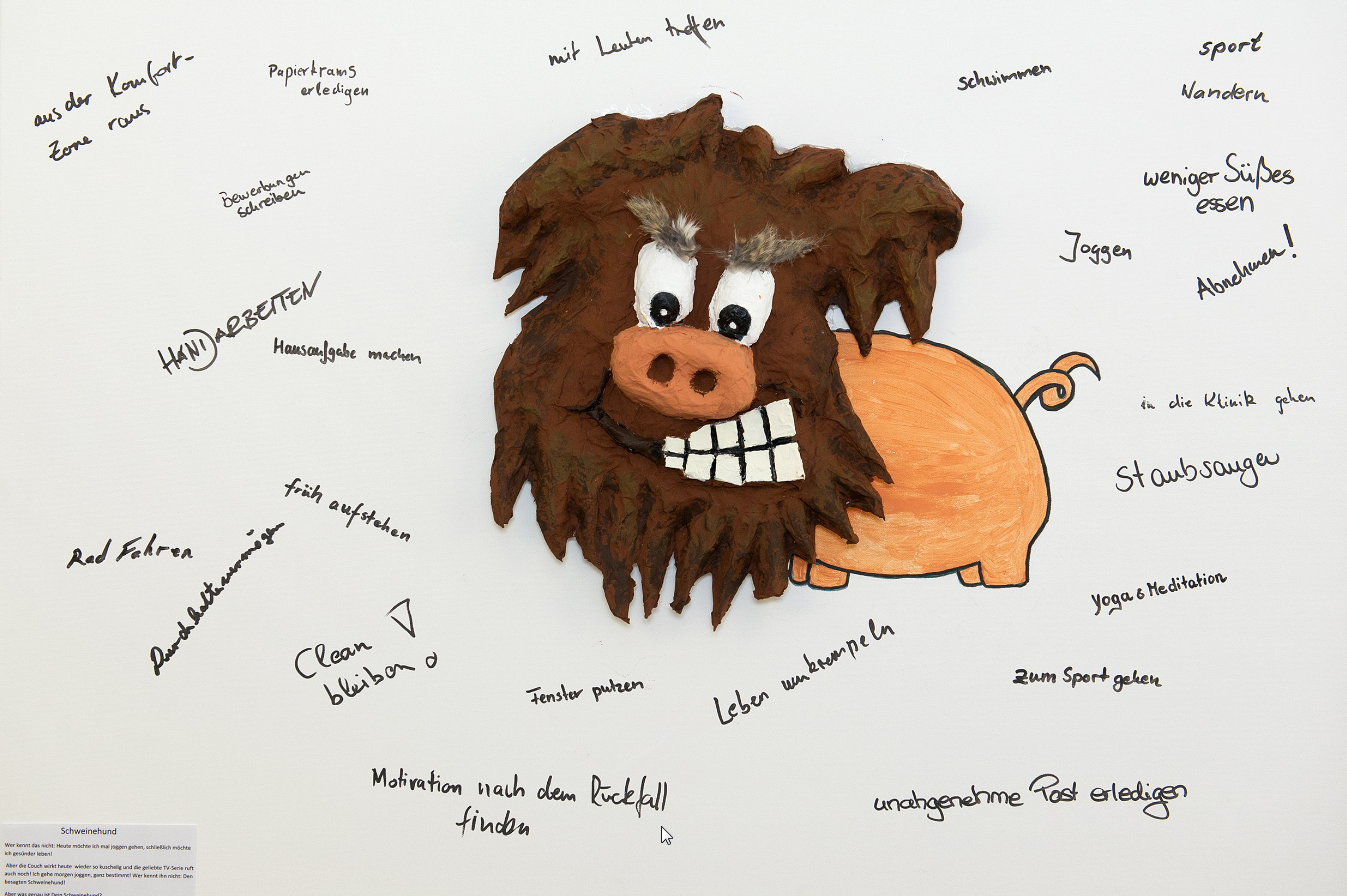 mit Leuten treffen
aus der Komfort-
Zone raus
Papierkrams
erledigen
schwimmen
sport
Wandern
Bewerbungen
schreiben
weniger Süßes
essen
Joggen
Abnehmen!
HANDARBEITEN
Hausaufgabe machen
in die Klinik gehen
Staubsaugen
früh aufstehen
Rad Fahren
Durchhaltevermögen
Yoga & Meditation
Clean
bleiben!
Fenster putzen
Leben umkrempeln
zum Sport gehen
Motivation nach dem Rückfall
finden
unangenehme Post erledigen
Schweinehund
Wer kennt das nicht: Heute möchte ich mal joggen gehen, schließlich möchte
ich gesünder leben!
Aber die Couch wirkt heute wieder so kuschelig und die geliebte TV-Serie ruft
auch noch! Ich gehe morgen joggen, ganz bestimmt! Wer kennt ihn nicht: Den
besagten Schweinehund!
Aber was genau ist Dein Schweinehund?